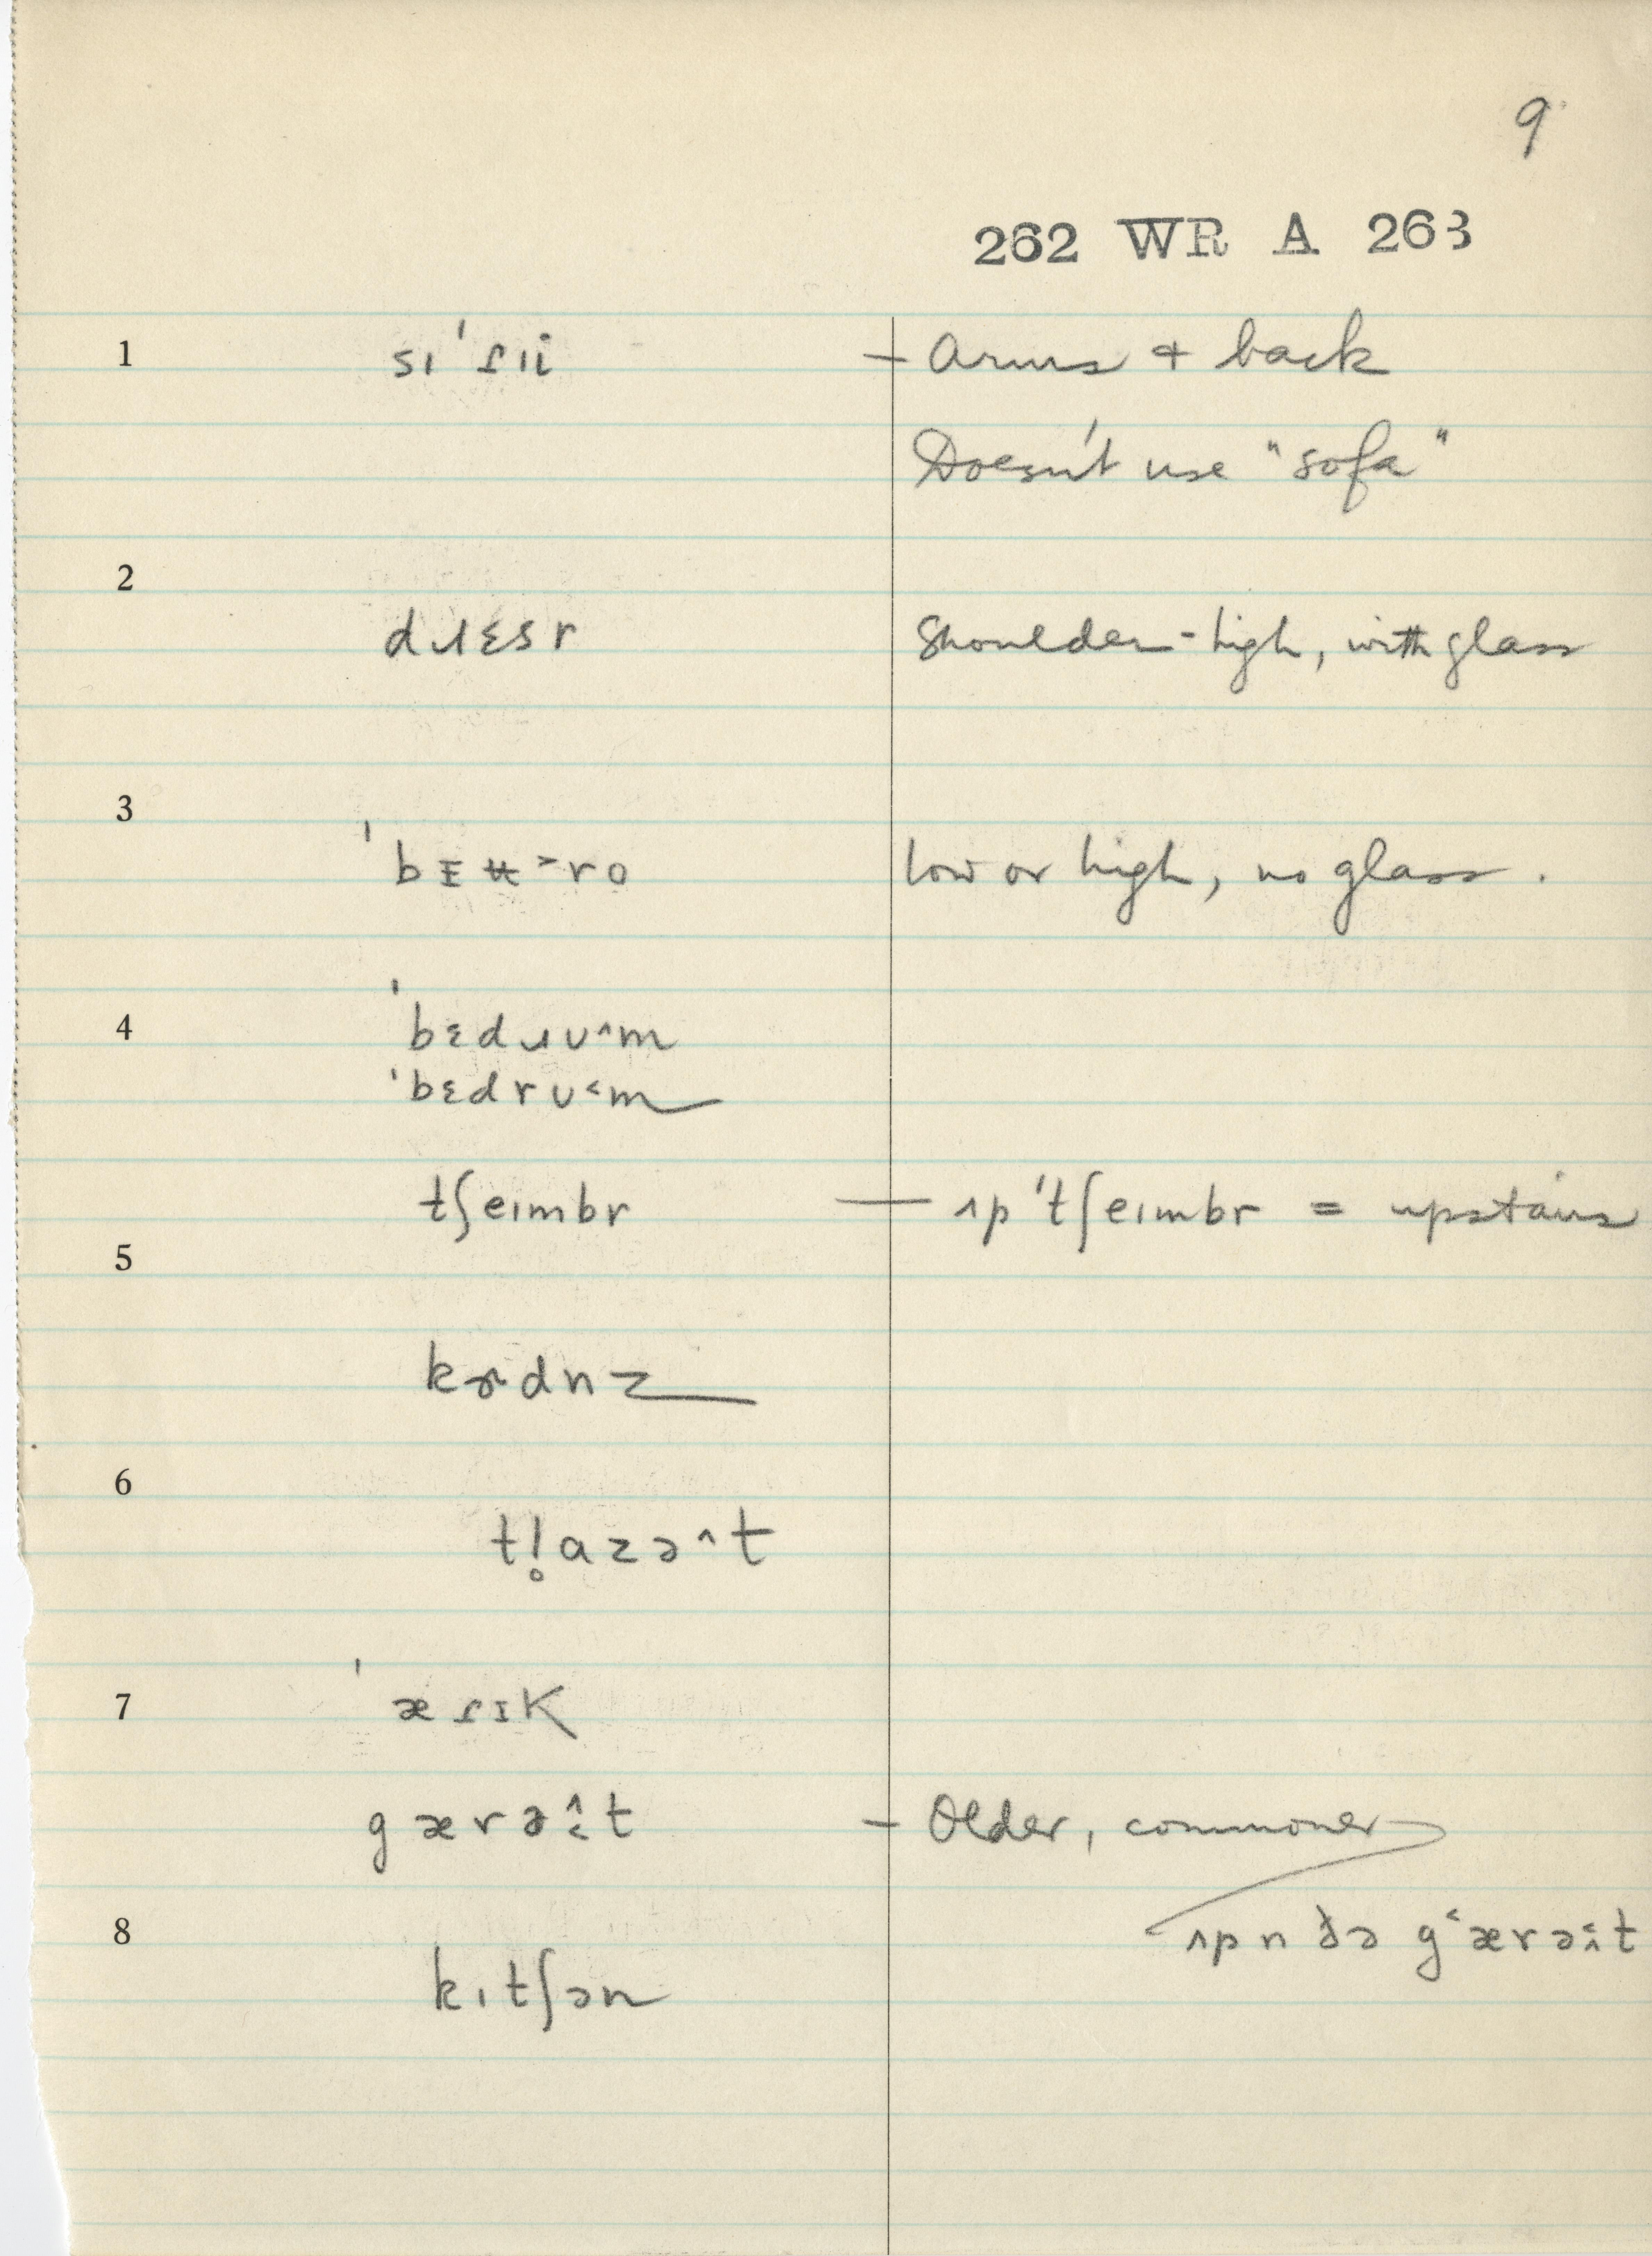 9
262 WR A 263
1 sɪˈɾɪi – Arms + back
Doesn't use "sofa"
2
dɹɛsr Shoulder-high, with glass
3
ˈbɪʉ˃ro low or high, no glass.
4 ˈbɛdɹʊ^m
ˈbɛdrʊ˂m
tʃeɪmbr — ʌpˈtʃeɪmbr = upstairs
5
kɝdnz
6
tl̥azə^t
7 ˈæɾɪK
gærə^˂t – Older, commoner
8 ʌp n ðə g˂ærə˂^t
kɪtʃən